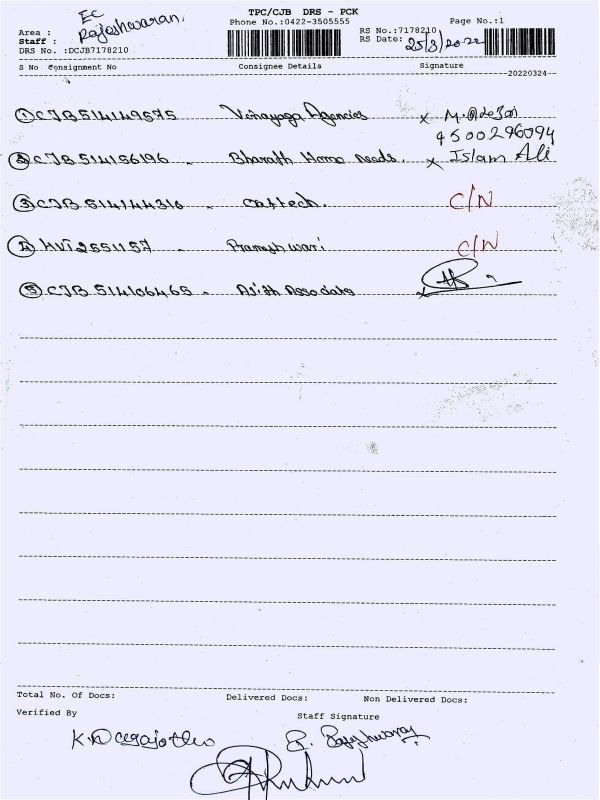 TPC/CJB DRS - PCK
EC
Rajeshwaran,
Phone No.:0422-3505555
RS No.:7178210
Page No.:1
Area :
Staff :
RS Date: 25/3/2022
DRS No. :DCJB7178210
S No Consignment No Consignee Details Signature
--20220324--
① CJB514149575 Vinayaga Agencies x
9500296094
② CJB 514156196 - Bharath Home needs. x Islam Ali
③ CJB 514144316 - Cattech. C/N
④ HVT2551157 - Prameshwari C/N
⑤ CJB 514106465 - Ajith Associates x
Total No. Of Docs: Delivered Docs: Non Delivered Docs:
Verified By Staff Signature